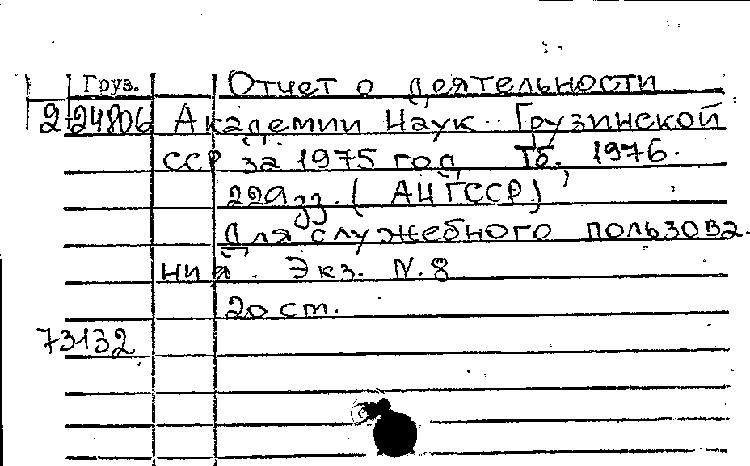 Груз. Отчет о деятельности
2-24806 Академии Наук Грузинской
ССР за 1975 год Тб. 1976.
229 გვ. (АН ГССР)
Для служебного пользова-
ния. Экз. N.8
20 ст.
73132